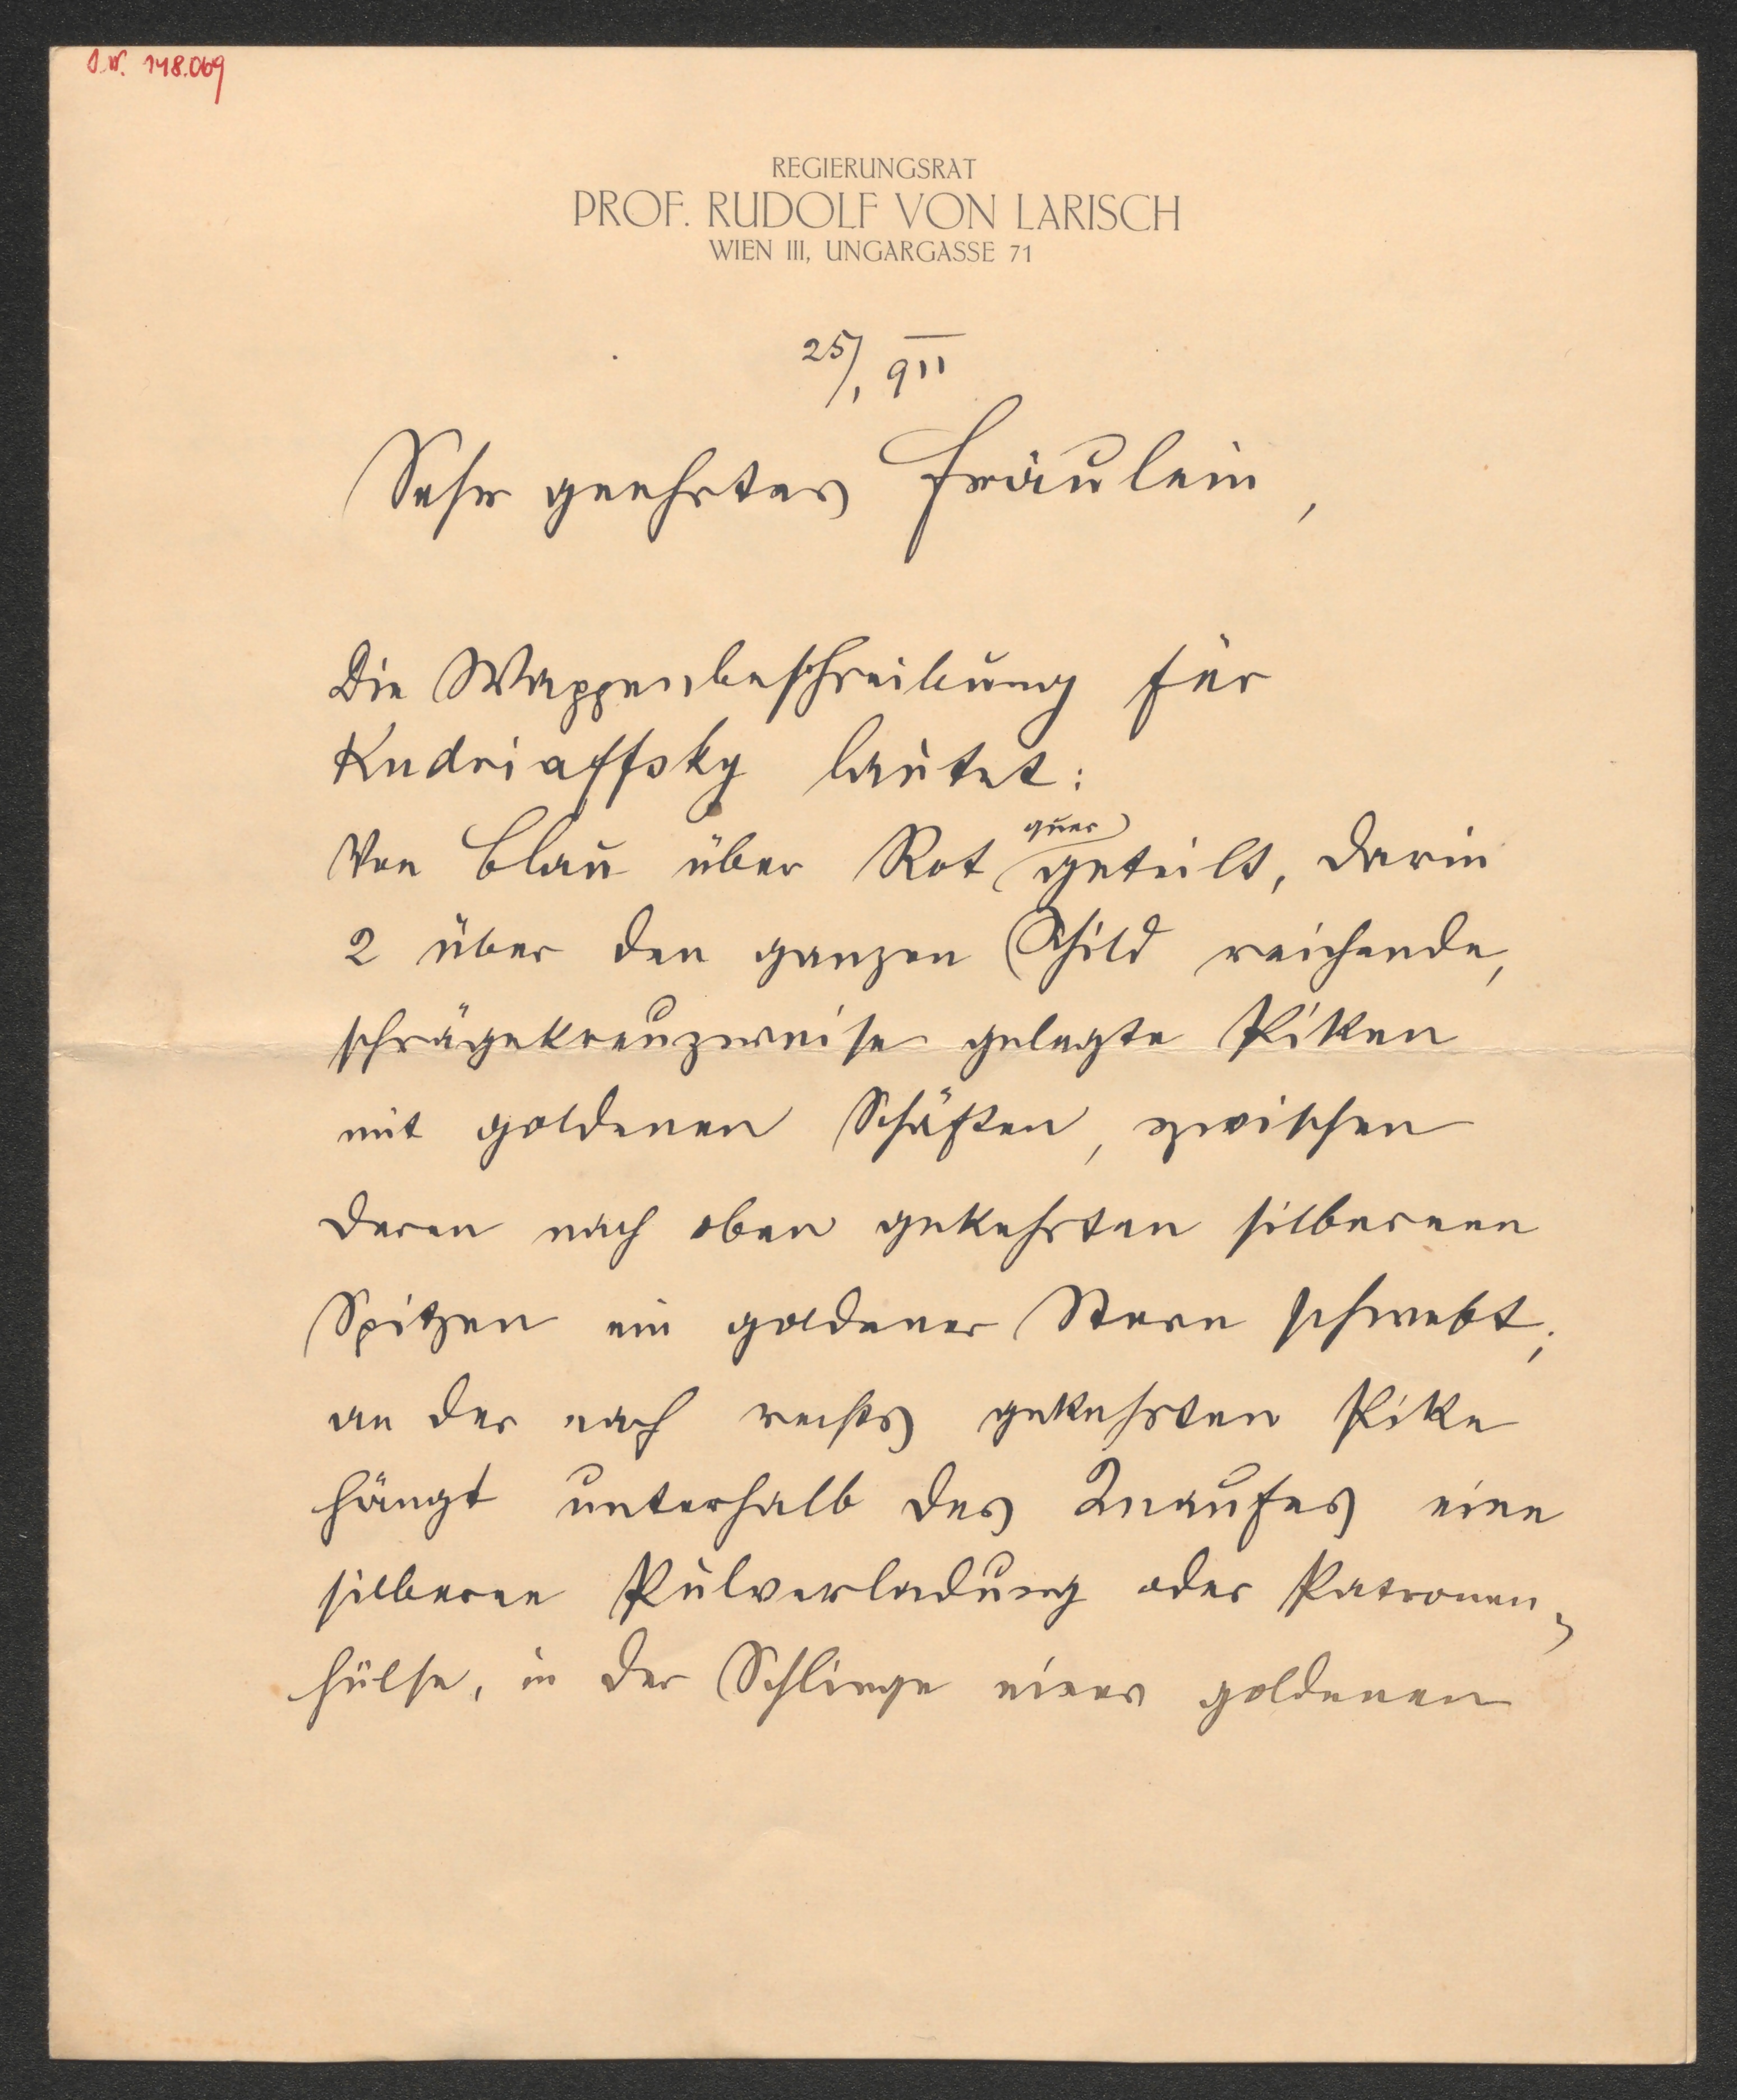 I.N. 148.069
REGIERUNGSRAT
PROF. RUDOLF VON LARISCH
WIEN III, UNGARGASSE 71
25/1 911
Sehr geehrtes Fräulein,
Die Wappenbeschreibung für
Kudriaffsky lautet:
Von Blau über Rot quer geteilt, darin
2 über den ganzen Schild reichende,
schrägekreuzweise gelegte Piken
mit goldenen Schäften, zwischen
deren nach oben gekehrten silbernen
Spitzen ein goldener Stern schwebt;
an der nach rechts gekehrten Pike
hängt unterhalb des Knaufes eine
silberne Pulverladung oder Patronen-
hülse, in der Schlinge eines goldenen